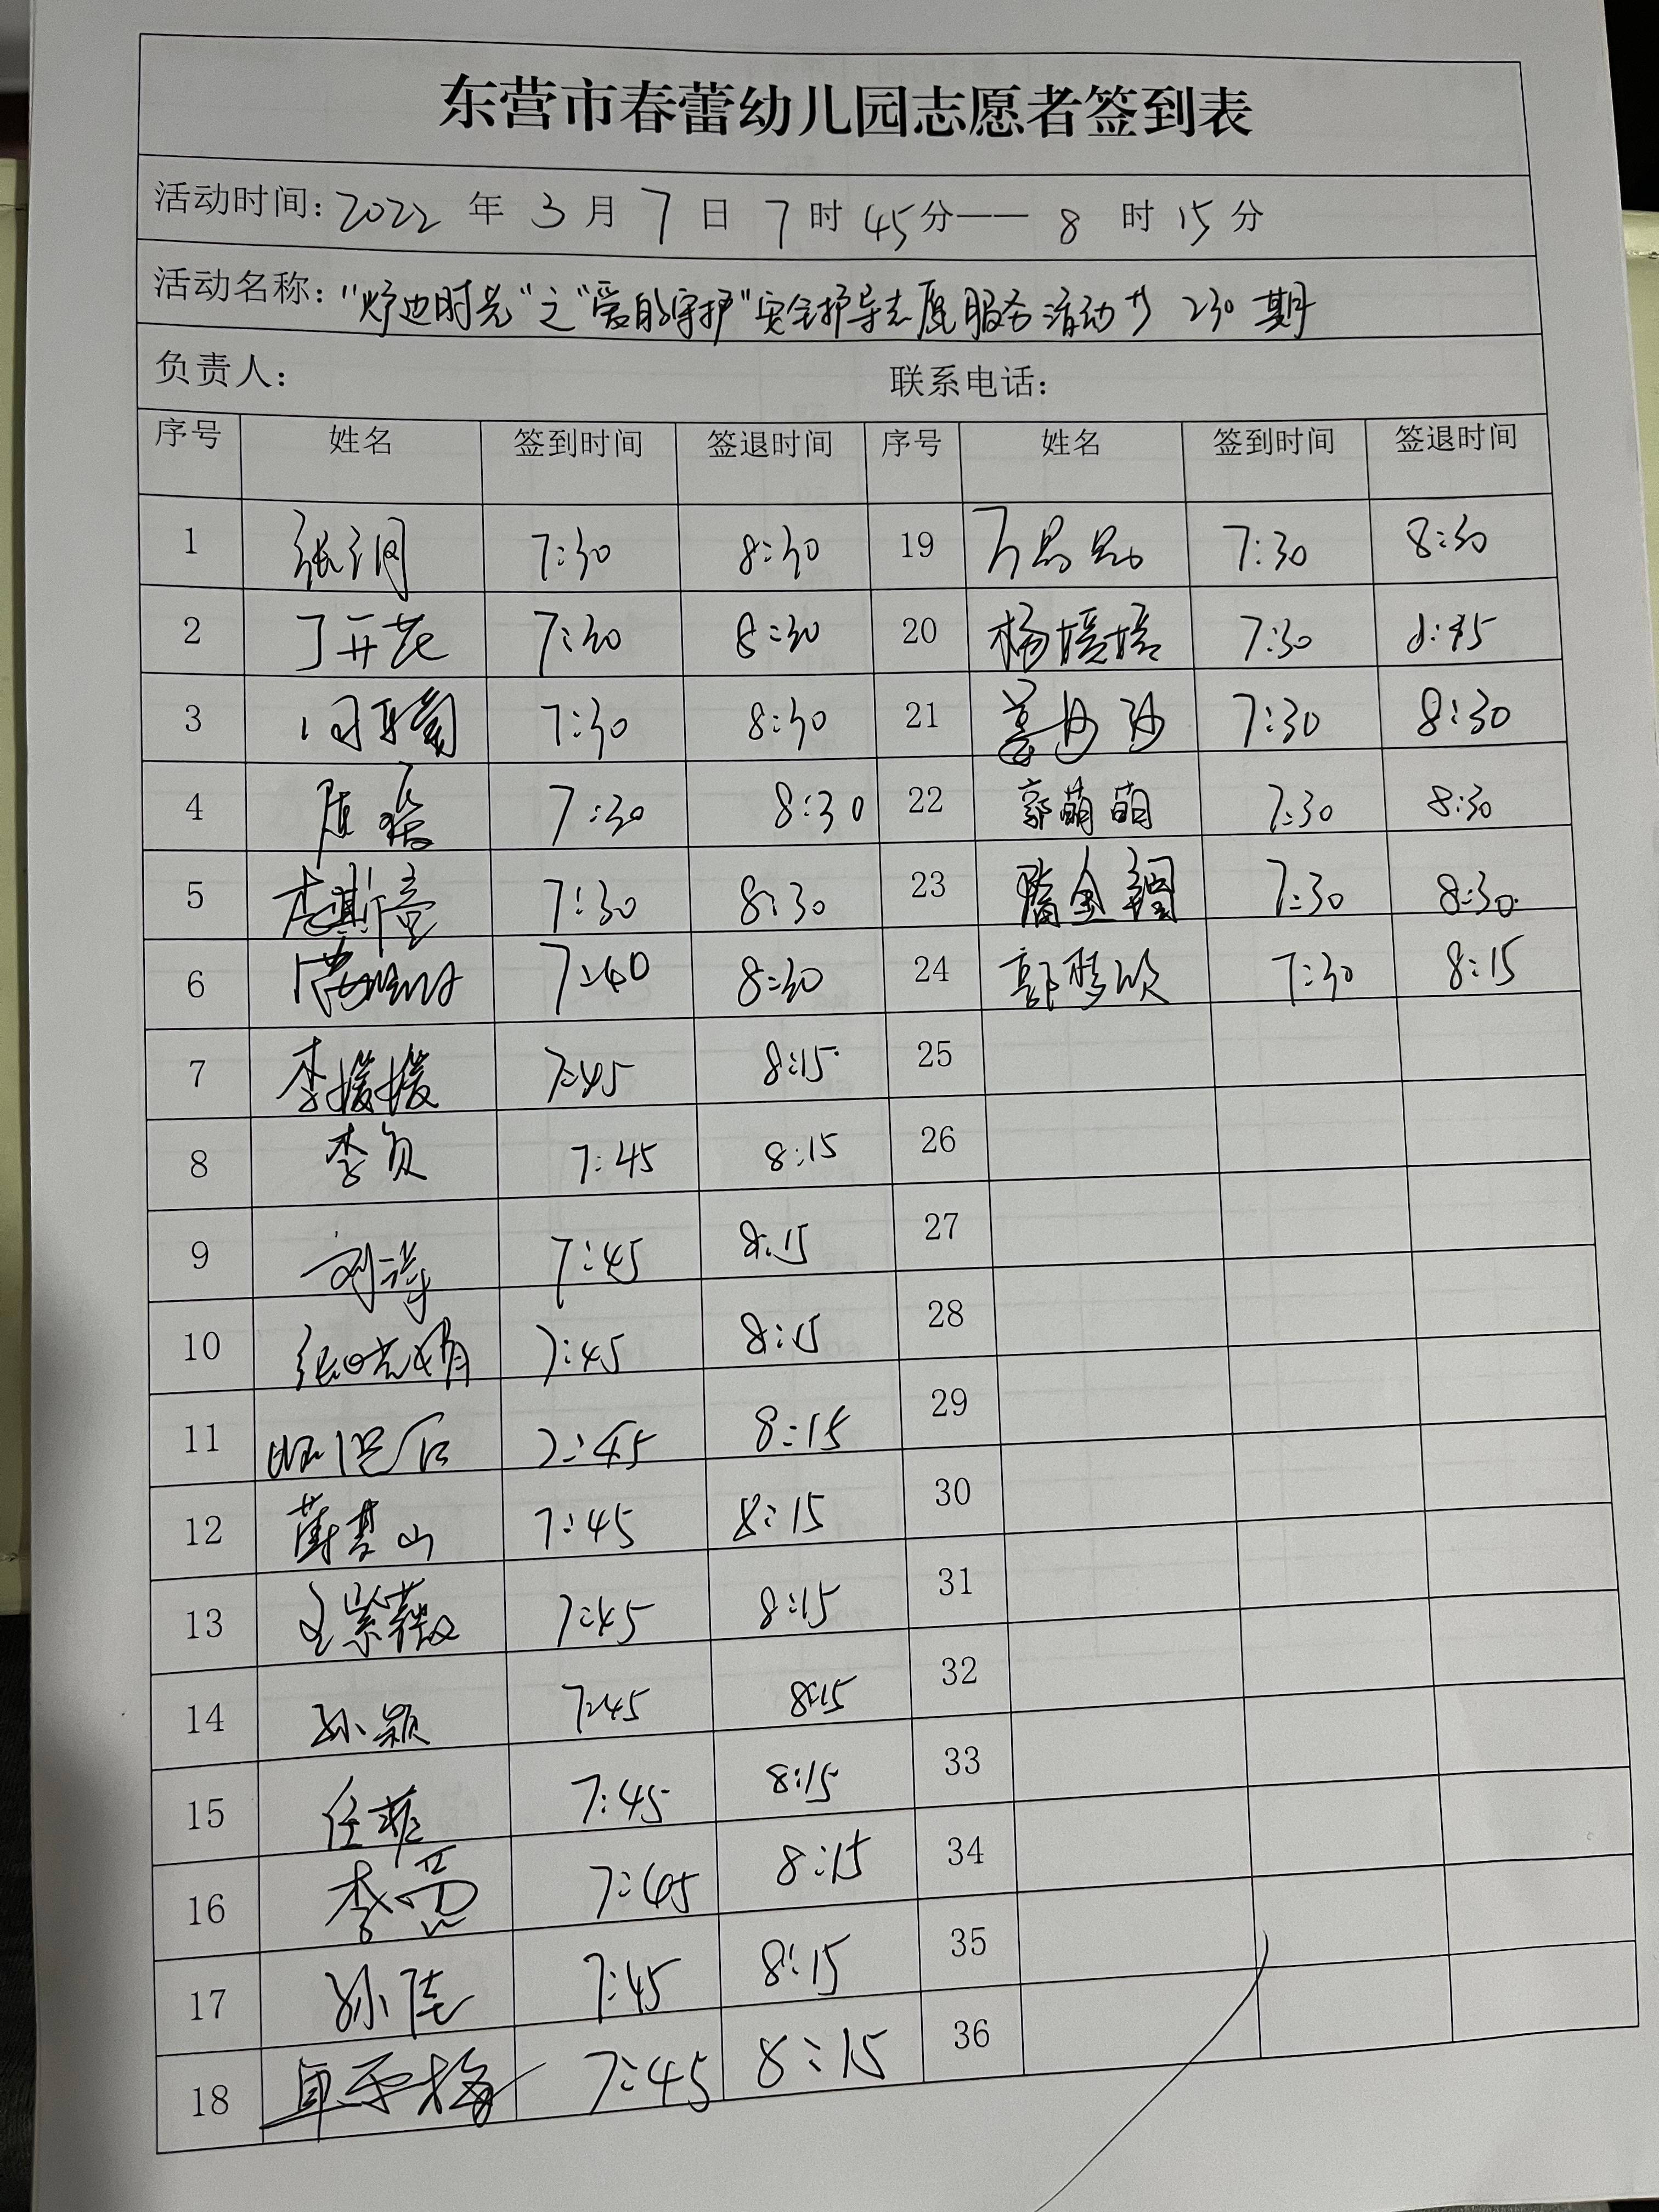 东营市春蕾幼儿园志愿者签到表
活动时间：2022 年 3 月 7 日 7 时 45 分—— 8 时 15 分
活动名称："炉边时光"之"爱的守护"安全护导志愿服务活动 230 期
负责人： 联系电话：
序号 姓名 签到时间 签退时间 序号 姓名 签到时间 签退时间
1 张润 7:30 8:30 19 7:30 8:30
2 丁开花 7:30 8:30 20 杨媛媛 7:30 8:15
3 7:30 8:30 21 姜沙沙 7:30 8:30
4 7:30 8:30 22 郭萌萌 7:30 8:30
5 7:30 8:30 23 7:30 8:30
6 7:40 8:30 24 郭梦欣 7:30 8:15
7 李媛媛 7:45 8:15 25
8 李 7:45 8:15 26
9 刘萍 7:45 8:15 27
10 张晓娟 7:45 8:15 28
11 7:45 8:15 29
12 7:45 8:15 30
13 王紫薇 7:45 8:15 31
14 孙颖 7:45 8:15 32
15 任菲 7:45 8:15 33
16 李 7:45 8:15 34
17 孙佳 7:45 8:15 35
18 7:45 8:15 36